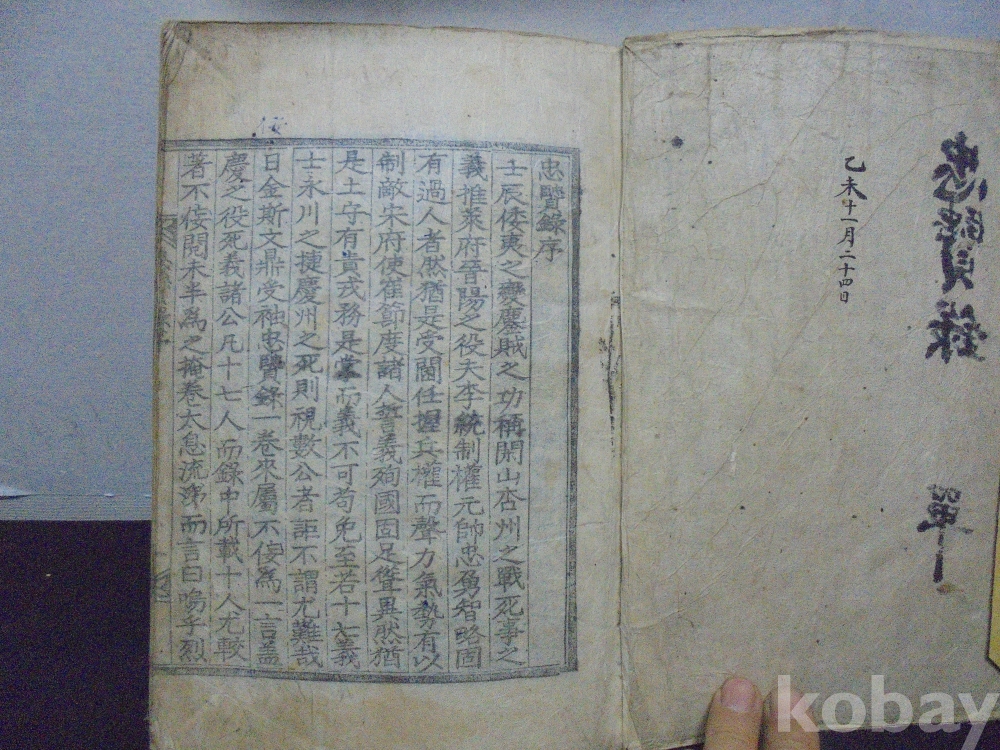 忠賢錄
單
乙未十一月二十四日
忠賢錄序
壬辰倭夷之變鏖賊之功稱閑山杏州之戰死事之
義推萊府晉陽之役夫李統制權元帥忠勇智略固
有過人者然猶是受閫任握兵權而聲力氣勢有以
制敵宋府使崔節度諸人誓義殉國固足聳異然猶
是土守有責戎務是掌而義不可苟免至若十七義
士永川之捷慶州之死則視數公者詎不謂尤難哉
日金斯文鼎受袖忠賢錄一卷來屬不佞爲一言盖
慶之役死義諸公凡十七人而錄中所載十人尤較
著不佞閱未半爲之掩卷太息流涕而言曰嗚乎烈
kobay